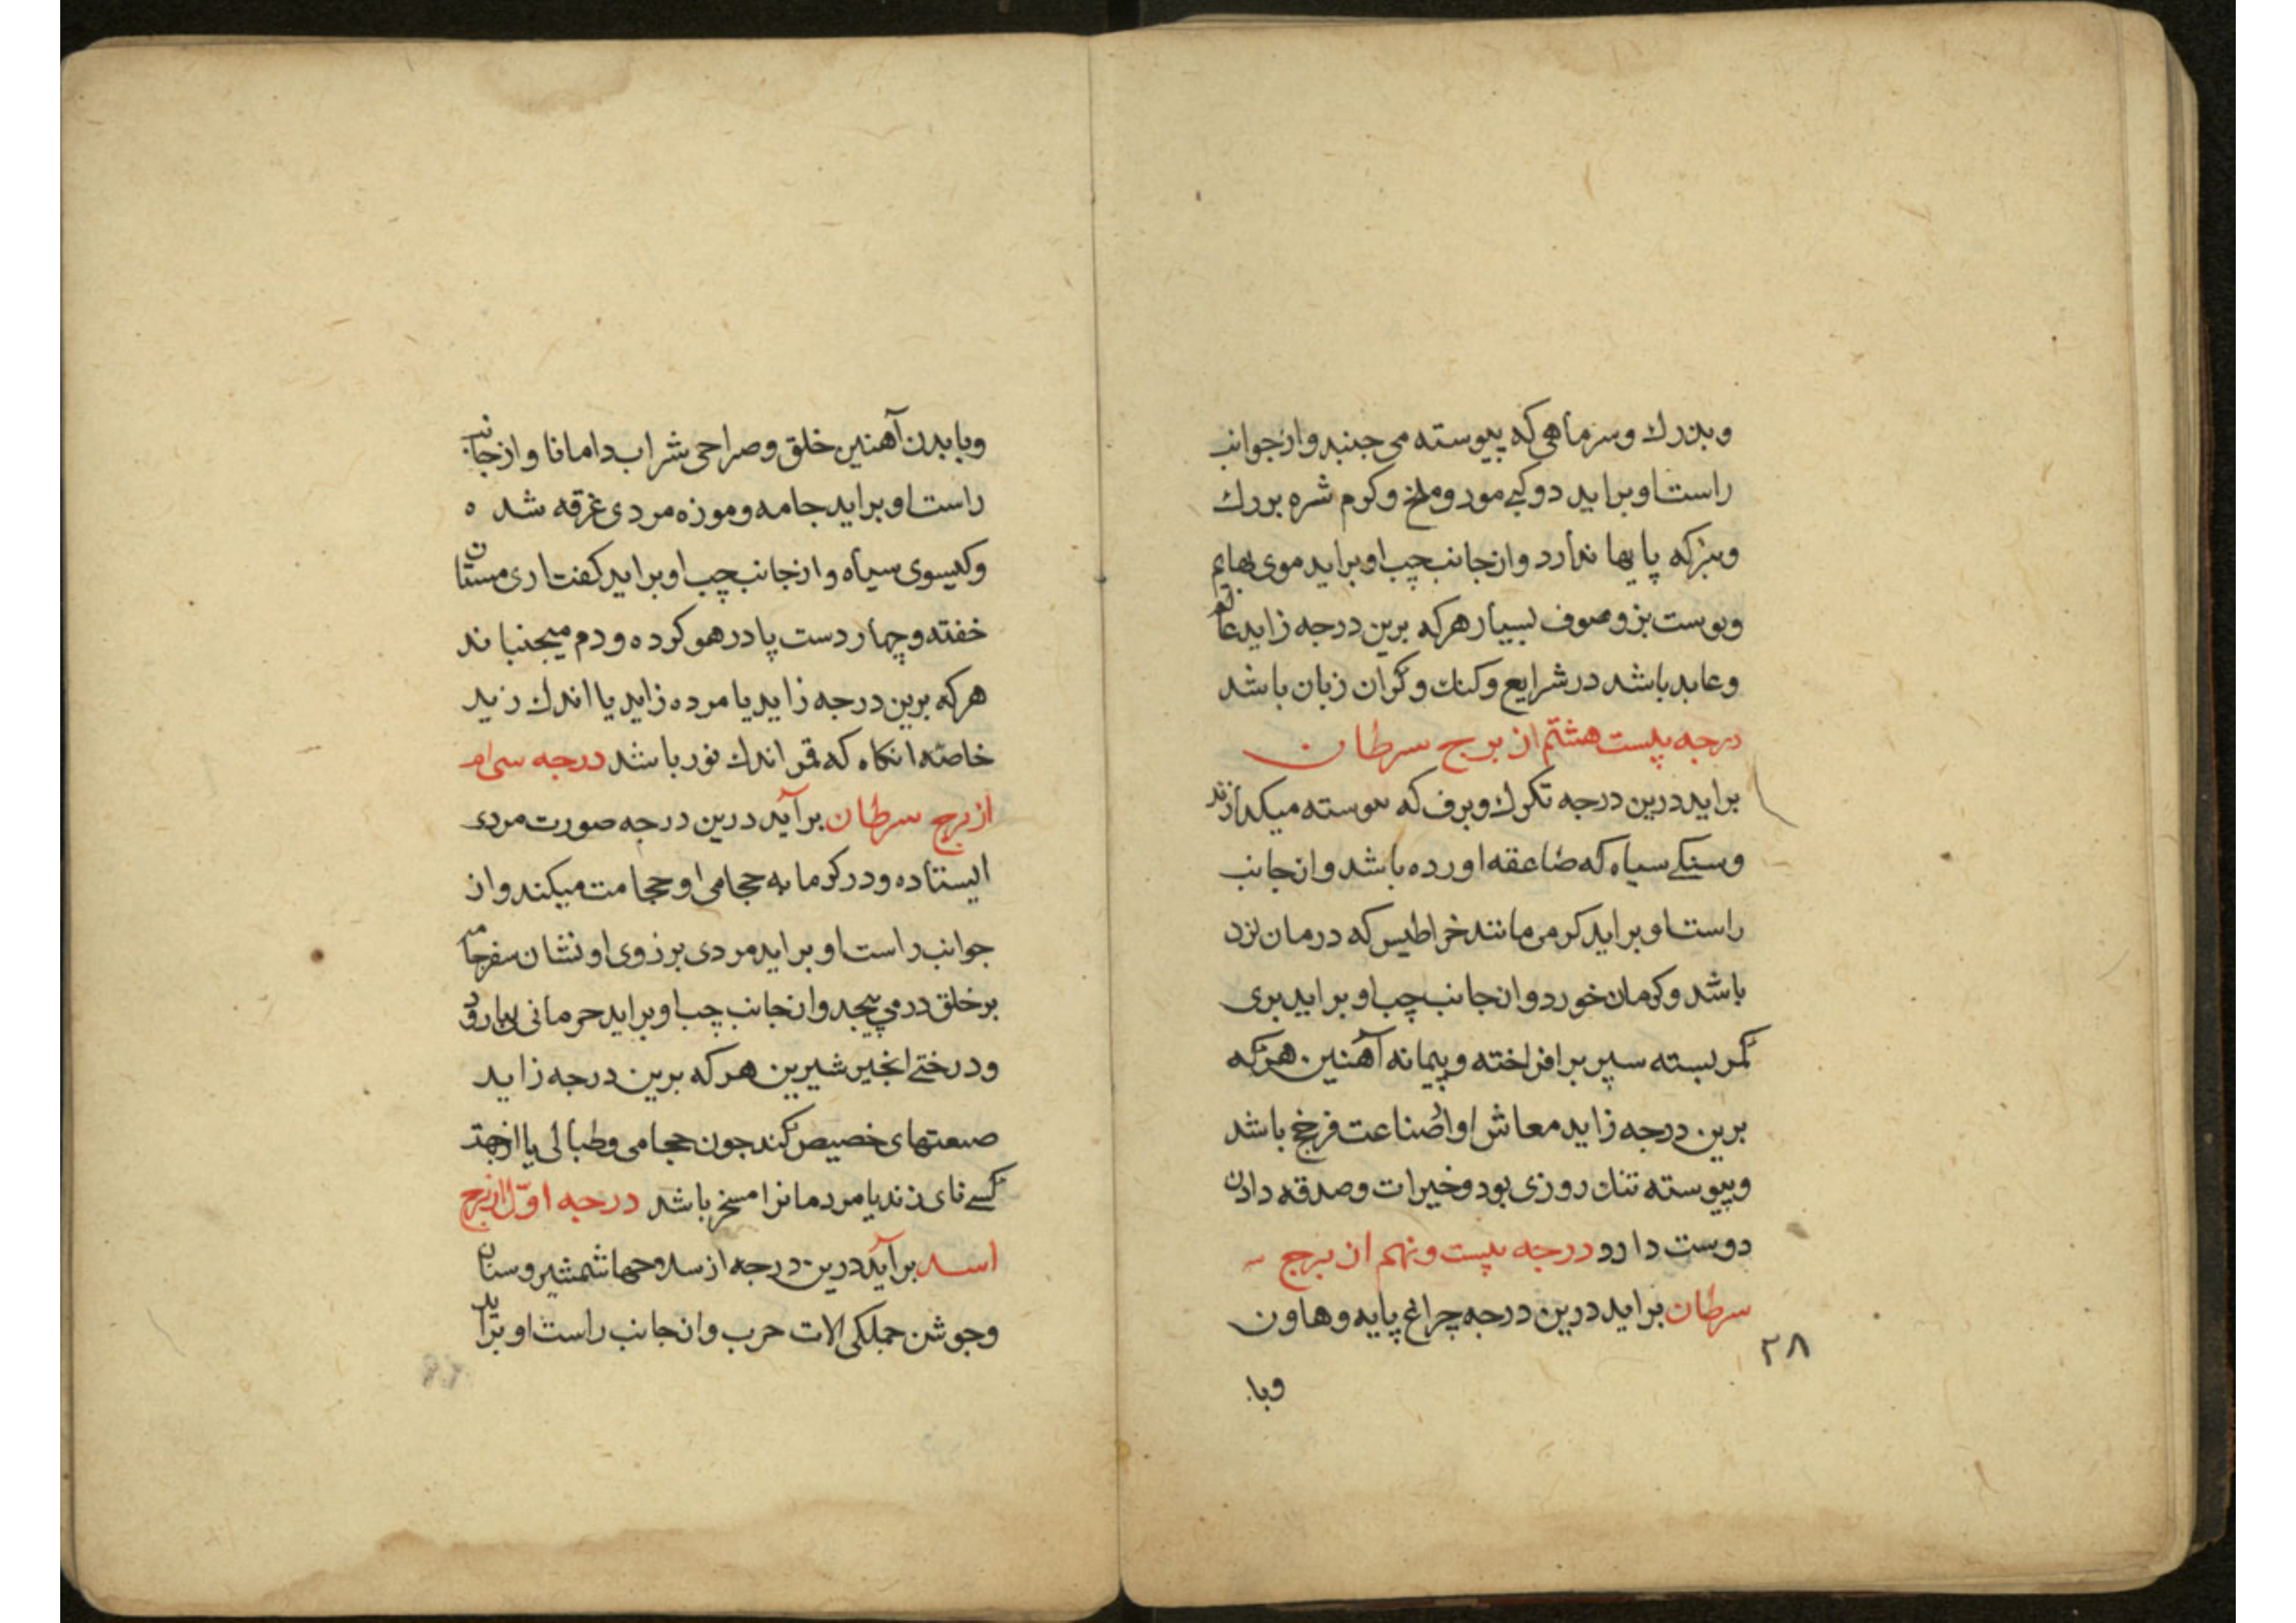 وبزرك وسرماهی که پیوسته می جنبد واز جوانب
راست او براید دوکی مور وملخ وکرم شره بزرك
وبزکه پایها ندارد واز جانب چپ او براید موی بهایم
وپوست بز وصوف بسیار هرکه برین درجه زاید عالم
وعابد باشد در شرایع وکنك وکران زبان باشد
درجه بیست هشتم از برج سرطان
براید درین درجه تکرك وبرف که پیوسته میکدازند
وسنکی سیاه که صاعقه اورده باشد واز جانب
راست او براید کرمی مانند خراطیس که درمان نزد
باشد وکرمان خورد واز جانب چپ او براید بری
کمر بسته سپر برافراخته وپیمانه آهنین هرکه
برین درجه زاید معاش او از صناعت فرخ باشد
وپیوسته تنك روزی بود وخیرات وصدقه دادن
دوست دارد درجه بیست ونهم از برج
سرطان براید درین درجه چراغ پایه وهاون
۲۸
وبا
وبا بدن آهنین خلق وصراحی شراب دامانا واز جانب
راست او براید جامه وموزه مردی غرقه شده
وکیسوی سیاه واز جانب چپ او براید کفتاری مستان
خفته وچهار دست پا در هوا کرده ودم میجنباند
هرکه برین درجه زاید یا مرده زاید یا اندك زید
خاصه انکاه که قمر اندك نور باشد درجه سی ام
از برج سرطان برآید درین درجه صورت مردی
ایستاده ودر کرمابه حجامی او حجامت میکند واز
جوانب راست او براید مردی بر زوی او نشان سفر جامه
بر خلق در می پیچد واز جانب چپ او براید خرمانی
ودرختی انجیر شیرین هرکه برین درجه زاید
صنعتهای خصیص کند چون حجامی وطبالی یا از جهة
کسی نای زند یا مردمانرا مسخر باشد درجه اول از برج
اسد برآید درین درجه از سلاحها شمشیر وسنان
وجوشن جملکی الات حرب واز جانب راست او براید